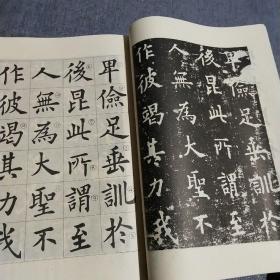 卑儉足垂訓於
後昆此所謂至
人無為大聖不
作彼竭其力我
卑儉足垂訓於
後昆此所謂至
人無為大聖不
作彼竭其力我